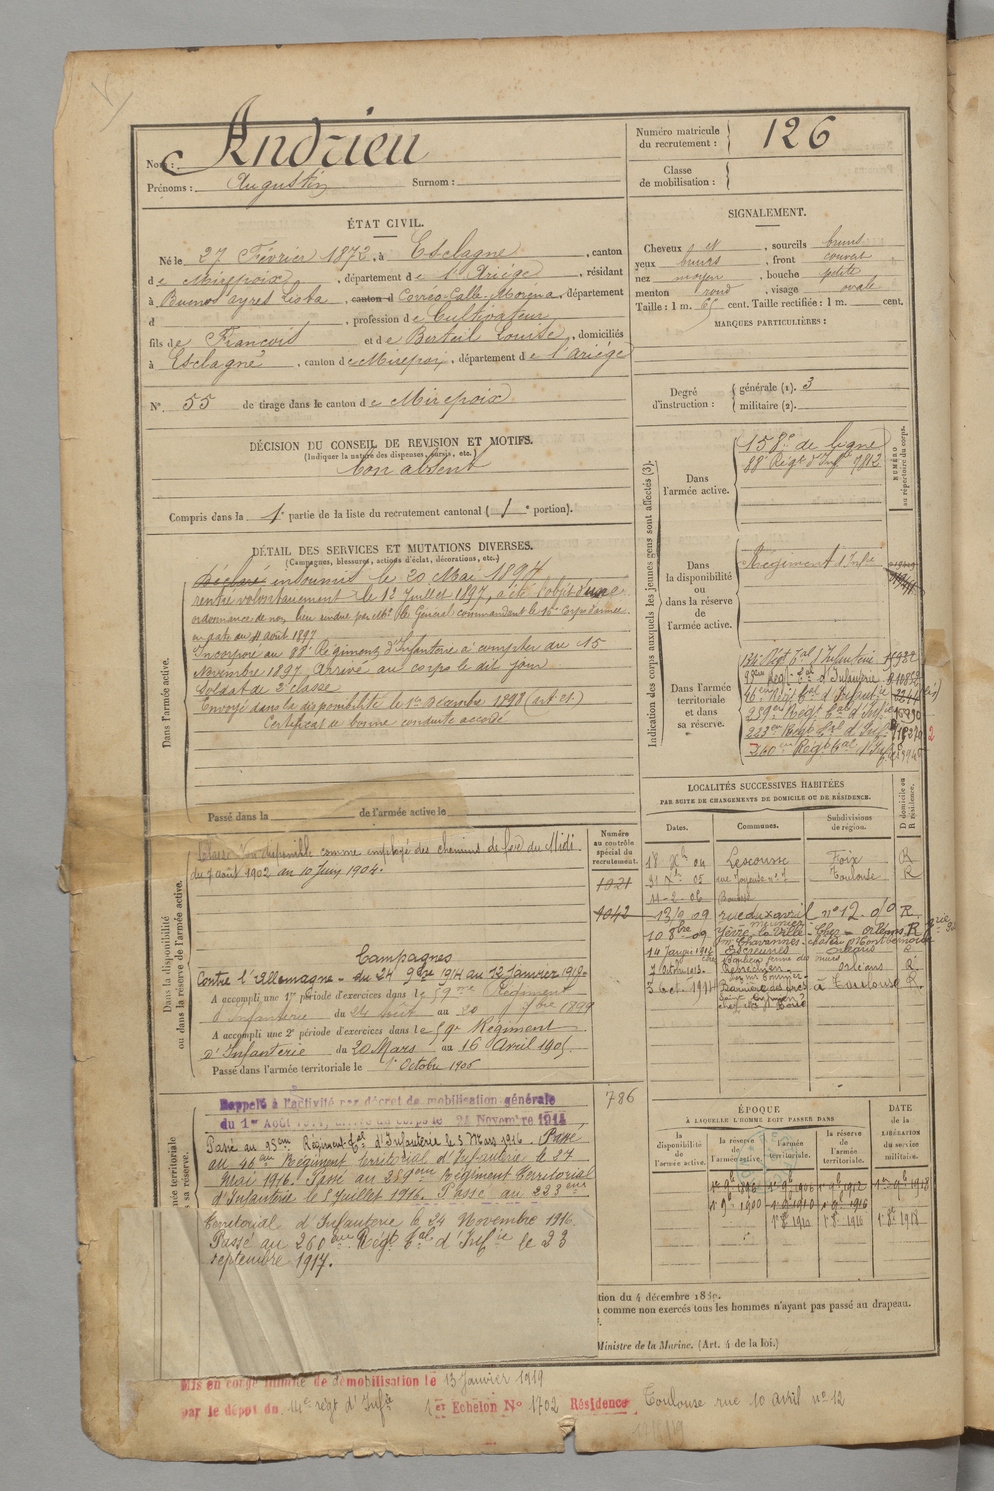 Nom : Andrieu
Prénoms : Augustin Surnom :
Numéro matricule du recrutement : 126
Classe de mobilisation :
ÉTAT CIVIL.
Né le 27 Février 1872, à Esclagne, canton
de Mirepoix, département de l'Ariège, résidant
à Buenos ayres, canton d Corréo Calle Moréna, département
d , profession de Cultivateur
fils de François et de Berteil Louise, domiciliés
à Esclagne, canton de Mirepoix, département de l'Ariège
N° 55 de tirage dans le canton de Mirepoix
SIGNALEMENT.
Cheveux et, sourcils bruns
yeux bruns, front couvert
nez moyen, bouche petite
menton rond, visage ovale
Taille : 1 m. 65 cent. Taille rectifiée : 1 m. cent.
MARQUES PARTICULIÈRES :
Degré d'instruction : générale (1). 3
militaire (2).
DÉCISION DU CONSEIL DE REVISION ET MOTIFS.
(Indiquer la nature des dispenses, sursis, etc.)
bon absent
Compris dans la 1e partie de la liste du recrutement cantonal (1e portion).
DÉTAIL DES SERVICES ET MUTATIONS DIVERSES.
(Campagnes, blessures, actions d'éclat, décorations, etc.)
Dans l'armée active.
Déclaré insoumis le 20 Mai 1894
rentré volontairement le 12 Juillet 1897, a été l'objet d'une
ordonnance de non lieu rendue par Mr le Général commandant le 16e Corps d'armée
en date du 4 août 1897
Incorporé au 88e Régiment d'Infanterie à compter du 15
Novembre 1897 Arrivé au corps le dit jour
Soldat de 2e classe
Envoyé dans la disponibilité le 1er Décembre 1898 (art 21)
Certificat de bonne conduite accordé
Passé dans la de l'armée active le
Indication des corps auxquels les jeunes gens sont affectés (3).
NUMÉRO au répertoire du corps.
Dans l'armée active.
158e de ligne
88e Régt d'Infie 7812
Dans la disponibilité ou dans la réserve de l'armée active.
Régiment d'Infie
Dans l'armée territoriale et dans sa réserve.
134e Régt Tal d'Infanterie
95eme Régt Tal d'Infanterie
46eme Régt Tal d'Infantie
259eme Régt Tal d'Infie
223eme Régt Tal d'Infie
260eme Régt Tal d'Infie
2
Dans la disponibilité ou dans la réserve de l'armée active.
Numéro au contrôle spécial du recrutement.
1021
1042
Classé non disponible comme employé des chemins de fer du Midi
du 7 août 1902 au 10 Juin 1904.
Campagnes
Contre l'Allemagne - du 24 9bre 1914 au 12 Janvier 1919
A accompli une 1re période d'exercices dans le 59me Régiment
d'Infanterie du 24 Août au 20 7bre 1899
A accompli une 2e période d'exercices dans le 59e Régiment
d'Infanterie du 20 Mars au 16 Avril 1905
Passé dans l'armée territoriale le 1er Octobre 1906
LOCALITÉS SUCCESSIVES HABITÉES
PAR SUITE DE CHANGEMENTS DE DOMICILE OU DE RÉSIDENCE.
Dates. Communes. Subdivisions de région. D domicile ou R résidence.
18 Xbre 04 Lescousse Foix R
31 Xbre 05 rue Joyeuse n° 7 Toulouse R
11-2-06
13/9 09 rue du x avril n° 12 R
10 8bre 09 Yèvre la Ville Orléans R
14 Janvier 1912 Escrennes Orléans
7 Octbre 1913 Orléans R
3 Oct. 1914 à Toulouse R
786
Rappelé à l'activité par décret de mobilisation générale
du 1er Août 1914, arrivé au corps le 24 Novembre 1914
Passé au 95eme Régiment Tal d'Infanterie le 3 Mars 1916. Passé
au 46eme Régiment territorial d'Infanterie le 27
Mai 1916. Passé au 259eme Régiment Territorial
d'Infanterie le 8 Juillet 1916. Passé au 223eme
Territorial d'Infanterie le 24 Novembre 1916
Passé au 260eme Régt Tal d'Infie le 23
septembre 1917.
ÉPOQUE
À LAQUELLE L'HOMME DOIT PASSER DANS
DATE de la LIBÉRATION du service militaire.
la disponibilité de l'armée active. la réserve de l'armée active. l'armée territoriale. la réserve de l'armée territoriale.
1er 9bre 1896 1er 9bre 1906 1er 9bre 1912 1er 9bre 1918
1er 9bre 1900 1er 9bre 1910 1er 9bre 1916
1er 8bre 1910 1er 8bre 1916 1er 8bre 1918
comme non exercés tous les hommes n'ayant pas passé au drapeau.
Ministre de la Marine. (Art. 4 de la loi.)
Mis en congé illimité de démobilisation le 13 Janvier 1919
par le dépôt du 14e régt d'Infie 1er Echelon N° 1702 Résidence Toulouse rue 10 avril n° 12